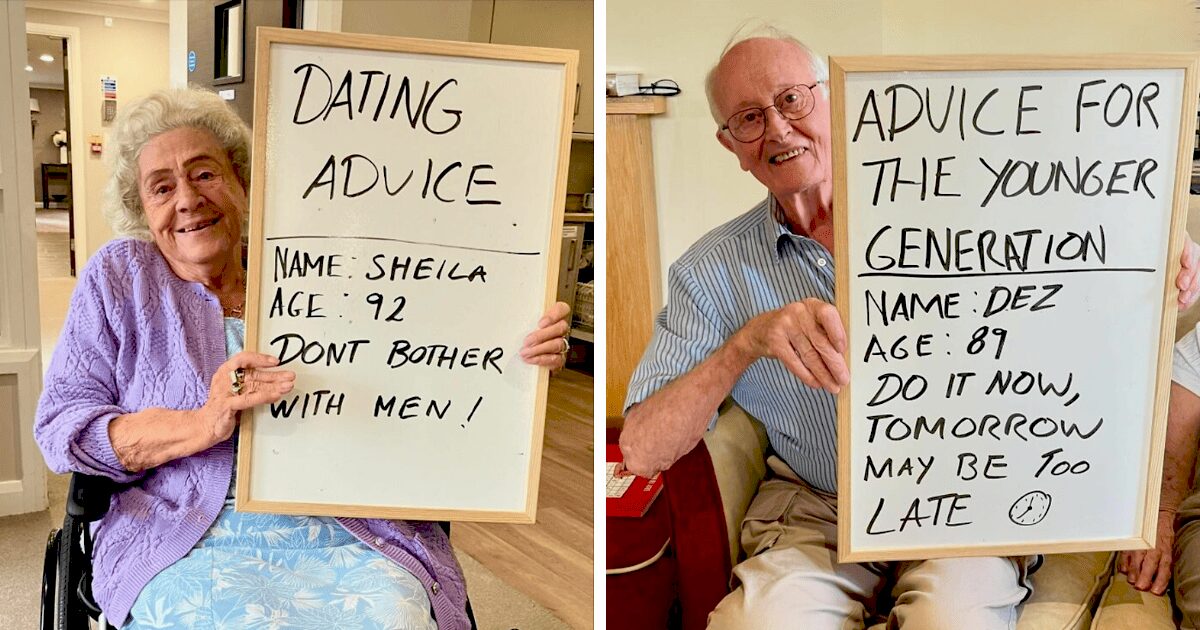 DATING
ADVICE
NAME: SHEILA
AGE: 92
DONT BOTHER
WITH MEN!
ADVICE FOR
THE YOUNGER
GENERATION
NAME: DEZ
AGE: 89
DO IT NOW,
TOMORROW
MAY BE TOO
LATE